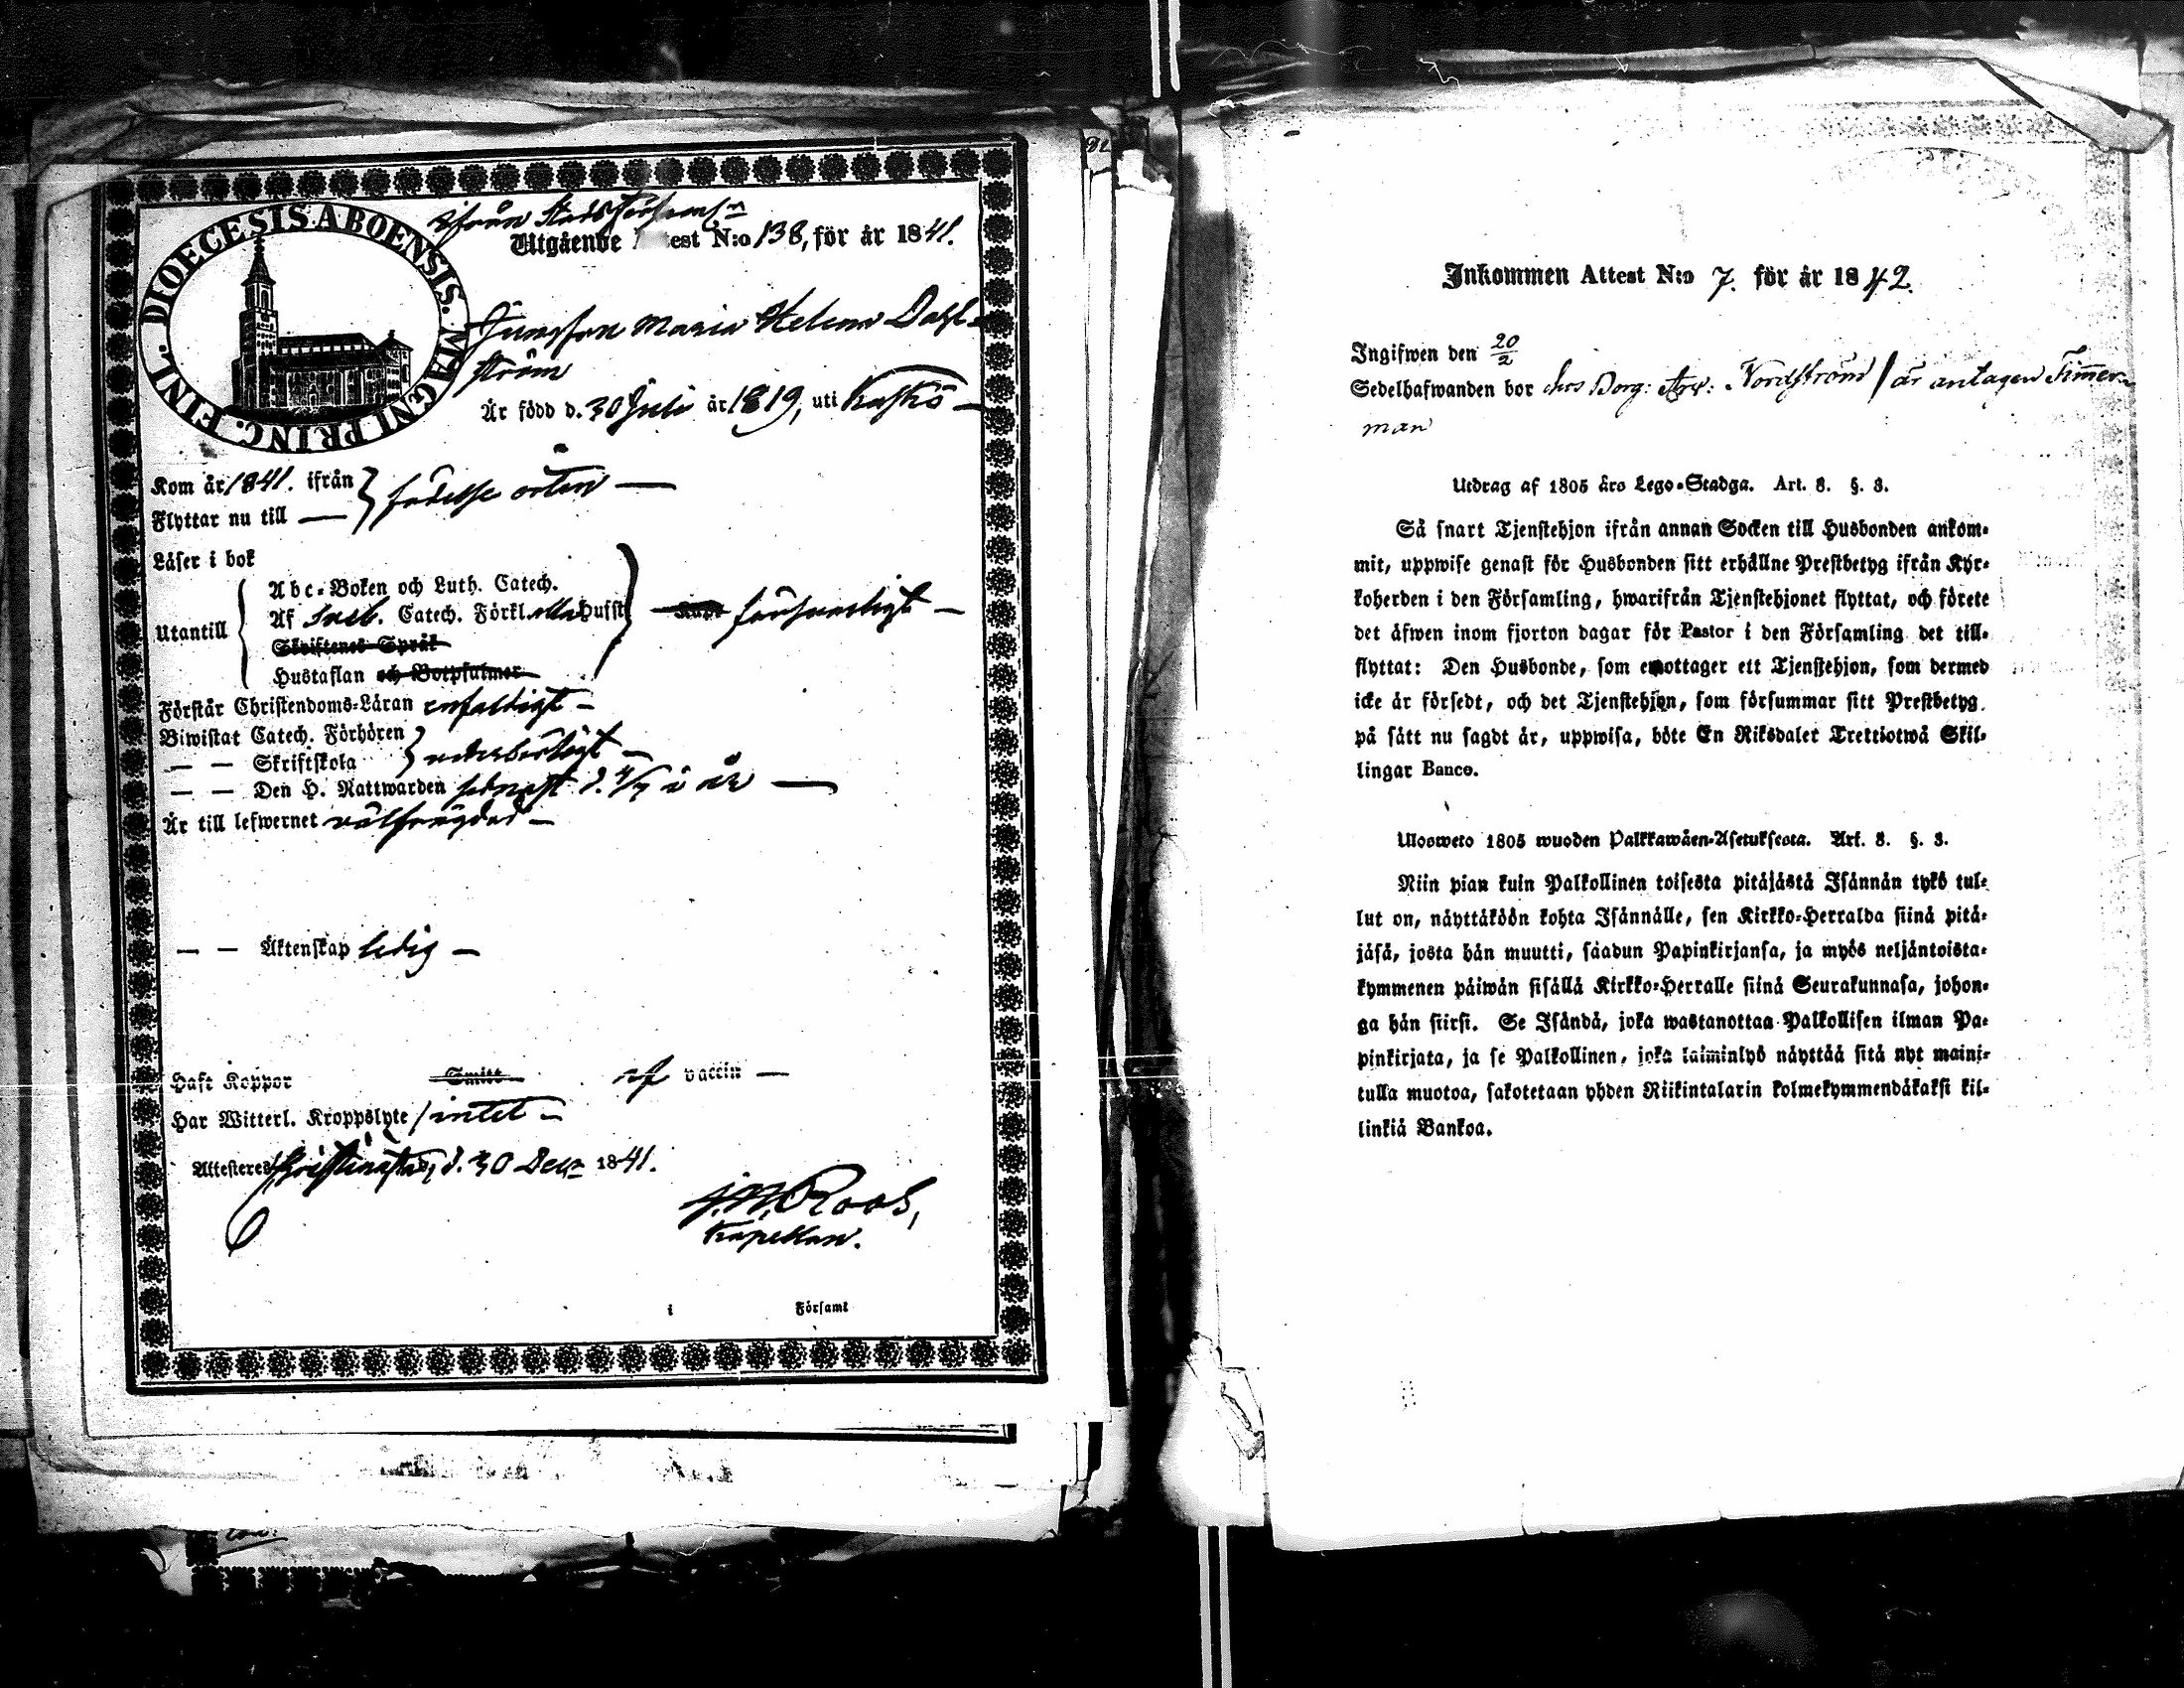 DIOECESIS ABOENSIS. MAGNI PRINC. FINL.
ifrån Stadsförsaml:n
Utgående Attest N:o 138, för år 1841.
Jungfrun Maria Helena Dahl-
ström
Är född d. 30 Juli år 1819, uti Kaskö —
Kom år 1841. ifrån
Flyttar nu till — } födelse orten —
Läser i bok
Abc-Boken och Luth. Catech.
Af Sveb. Catech. Förkl. alla Hufst.
Utantill
försvarligt —
Skriftenes Språk
Hustaflan och Botpsalmer
Förstår Christendoms-Läran enfaldigt —
Biwistat Catech. Förhören
— — Skriftskola } vederbörligt —
— — Den H. Nattwarden sednast d. 4/7 i år —
Är till lefwernet välfrägdad —
— — Äktenskap ledig —
Haft Koppor Smitt af vaccin —
Har Witterl. Kroppslyte / intet —
Attesteres Christinestad, d. 30 Dec:r 1841.
Roos,
Kapellan.
i Församl
Inkommen Attest N:o 7. för år 1842.
Ingifwen den 20/2
Sedelhafwanden bor hos Borg: Nordström / är antagen Timmer-
man
Utdrag af 1805 års Lego-Stadga. Art. 8. §. 3.
Så snart Tjenstehjon ifrån annan Socken till Husbonden ankom-
mit, uppwise genast för Husbonden sitt erhållne Prestbetyg ifrån Kyr-
koherden i den Församling, hwarifrån Tjenstehjonet flyttat, och förete
det äfwen inom fjorton dagar för Pastor i den Församling det till-
flyttat: Den Husbonde, som emottager ett Tjenstehjon, som dermed
icke är försedt, och det Tjenstehjon, som försummar sitt Prestbetyg
på sätt nu sagdt är, uppwisa, böte En Riksdaler Trettiotwå Skil-
lingar Banco.
Ulosweto 1805 wuoden Palkkawäen-Asetuksesta. Art. 8. §. 3.
Niin pian kuin Palkollinen toisesta pitäjästä Isännän tykö tul-
lut on, näyttäköön kohta Isännälle, sen Kirkko-Herralda siinä pitä-
jäsä, josta hän muutti, saadun Papinkirjansa, ja myös neljäntoista-
kymmenen päiwän sisällä Kirkko-Herralle siinä Seurakunnasa, johon-
ga hän siirsi. Se Isändä, joka wastanottaa Palkollisen ilman Pa-
pinkirjata, ja se Palkollinen, joka laiminlyö näyttää sitä nyt maini-
tulla muotoa, sakotetaan yhden Riikintalarin kolmekymmendäkaksi kil-
linkiä Bankoa.